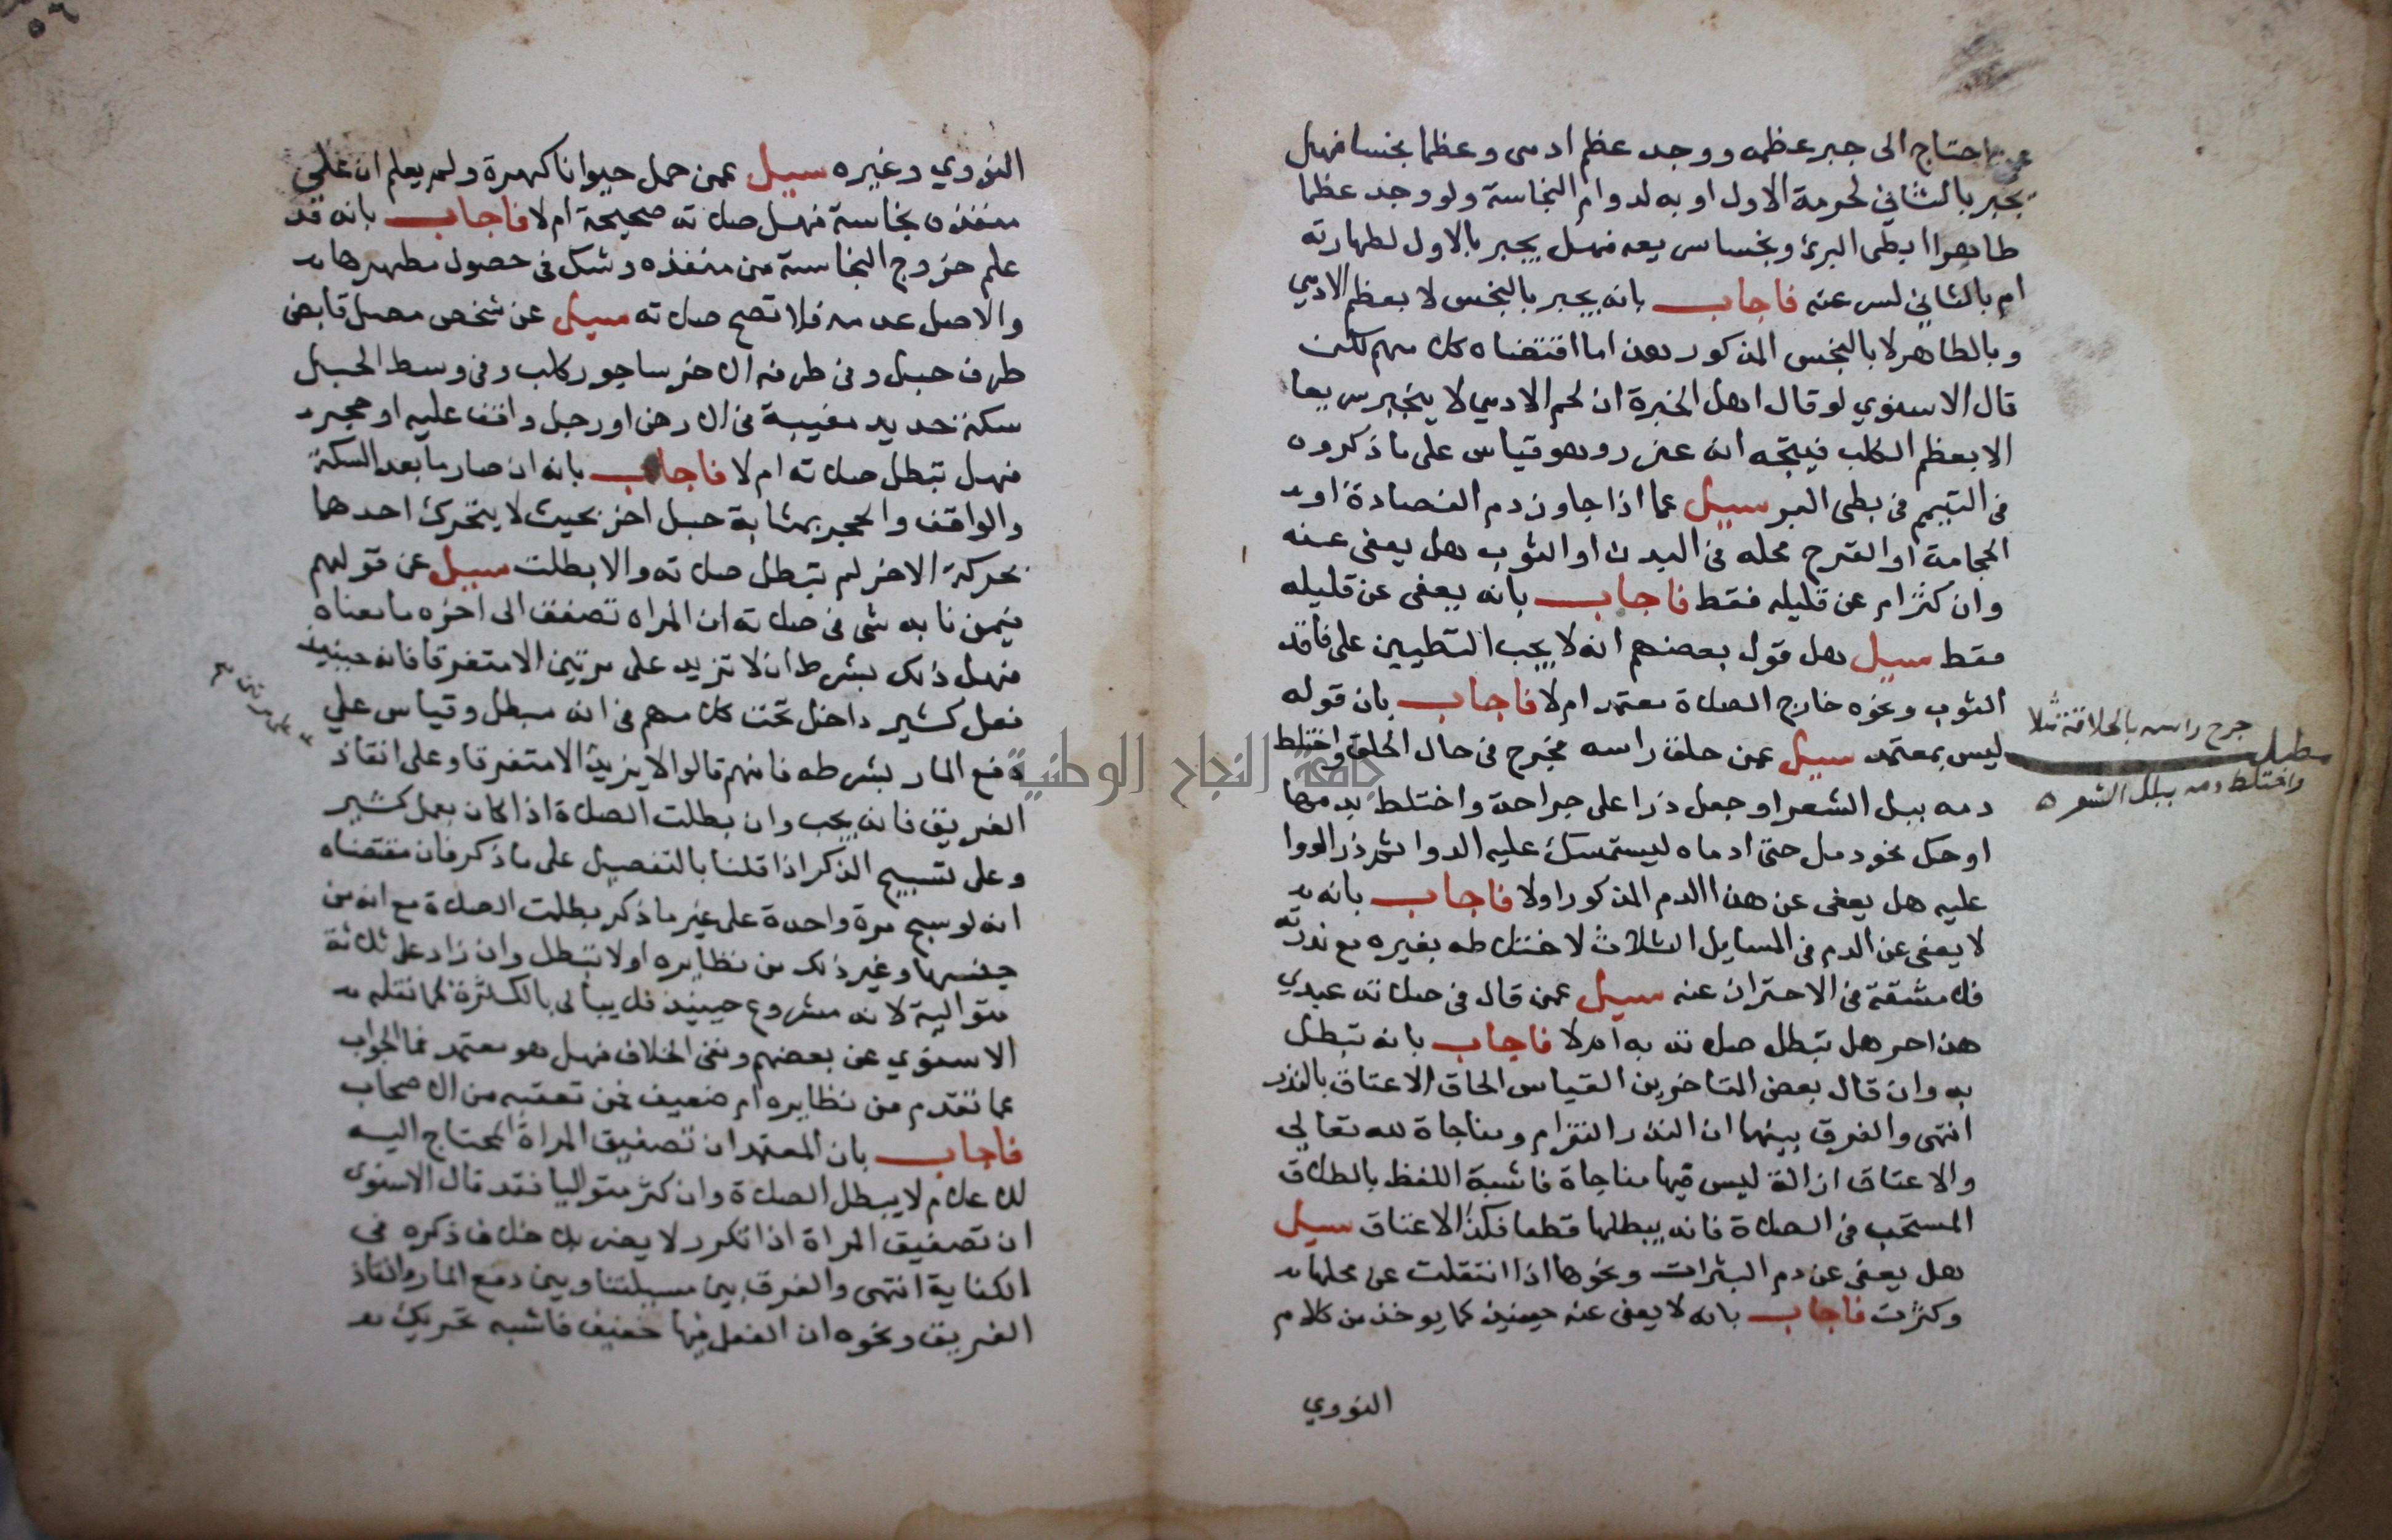 عمن احتاج الى جبر عظمه ووجد عظم ادمى وعظما نجسا فهل
يجبر بالثاني لحرمة الاول او به لدوام النجاسة ولو وجد عظما
طاهرا ابطى البرئ ونجسا سريعه فهل يجبر بالاول لطهارته
ام بالثاني لسرعته فاجاب بانه يجبر بالنجس لا بعظم الادمي
وبالطاهر لا بالنجس المذكور هذا ما اقتضاه كلامهم لكن
قال الاسنوي لو قال اهل الخبرة ان لحم الادمي لا ينجبر سريعا
الا بعظم الكلب فيتجه انه عذر وهو قياس على ما ذكروه
في التيمم في بطى البرء سيل عما اذا جاوز دم الفصادة او
الحجامة او القرح محله في البدن او الثوب هل يعفى عنه
وان كثر ام عن قليله فقط فاجاب بانه يعفى عن قليله
فقط سيل هل قول بعضهم انه لا يجب التطيين على فاقد
الثوب ونحوه خارج الصلاة معتمد ام لا فاجاب بان قوله
ليس بمعتمد سيل عمن حلق راسه فخرج في حال الحلق واختلط
جرح راسه بالحلاقة مثلا
مطلب
واختلط دمه ببلل الشعر ه
دمه ببلل الشعر او جعل ذرا على جراحة واختلط بدمها
او حك نحو دمل حتى ادماه ليستمسك عليه الدوا ثم ذر الدوا
عليه هل يعفى عن هذا الدم المذكور اولا فاجاب بانه
لا يعفى عن الدم في المسايل الثلاث لاختلاطه بغيره مع ندرته
فلا مشقة في الاحتراز عنه سيل عمن قال في صلاته عبدي
هذا حر هل تبطل صلاته به ام لا فاجاب بانه تبطل
به وان قال بعض المتاخرين القياس الحاق الاعتاق بالنذر
انتهى والفرق بينهما ان النذر التزام ومناجاة لله تعالي
والاعتاق ازالة ليس فيها مناجاة فاشبه اللفظ بالطلاق
المستحب في الصلاة فانه يبطلها قطعا فكذا الاعتاق سيل
هل يعفى عن دم البثرات ونحوها اذا انتقلت عن محلها
وكثرت فاجاب بانه لا يعفى عنه حينيذ كما يوخذ من كلام
النووي
٥٦
النووي وغيره سيل عمن حمل حيوانا كهرة ولم يعلم ان على
منفذه نجاسة فهل صلاته صحيحة ام لا فاجاب بانه قد
علم خروج النجاسة من منفذه وشك في حصول مطهرها
والاصل عدمه فلا تصح صلاته سيل عن شخص مصل قابض
طرف حبل وفي طرفه الاخر ساجور كلب وفي وسط الحبل
سكة حديد مغيبة في الارض او رجل واقف عليه او حجر
فهل تبطل صلاته ام لا فاجاب بانه ان صار ما بعد السكة
والواقف والحجر بمثابة حبل اخر بحيث لا يتحرك احدهما
بحركة الاخر لم تبطل صلاته والا بطلت سيل عن قولهم
فيمن نابه شى في صلاته ان المراه تصفق الى اخره ما معناه
فهل ذلك بشرط ان لا تزيد على مرتين الا متفرقا فانه حينيذ
على مرتين
فعل كثير داخل تحت كلامهم في انه مبطل وقياس على
دفع المار بشرطه فانهم قالوا لا يزيد الا متفرقا وعلى انقاذ
الغريق فانه يجب وان بطلت الصلاة اذا كان بعمل كثير
وعلى تسبيح الذكر اذا قلنا بالتفصيل على ما ذكر فان مقتضاه
انه لو سبح مرة واحدة على غير ما ذكر بطلت الصلاة مع انه من
جنسها وغير ذلك من نظايره اولا تبطل وان زاد على ثلاثة
متوالية لانه مشروع حينيذ فلا يبالى بالكثرة كما نقله
الاسنوي عن بعضهم ونفى الخلاف فهل هو معتمد فما الجواب
عما تقدم من نظايره ام ضعيف فمن تعقبه من الاصحاب
فاجاب بان المعتمد ان تصفيق المراة المحتاج اليه
للاعلام لا يبطل الصلاة وان كثر متواليا فقد قال الاسنوى
ان تصفيق المراة اذا تكرر لا يضر بلا خلاف ذكره في
الكفاية انتهى والفرق بين مسيلتنا وبين دفع المار وانقاذ
الغريق ونحوه ان الفعل فيها خفيف فاشبه تحريك
جامعة النجاح الوطنية